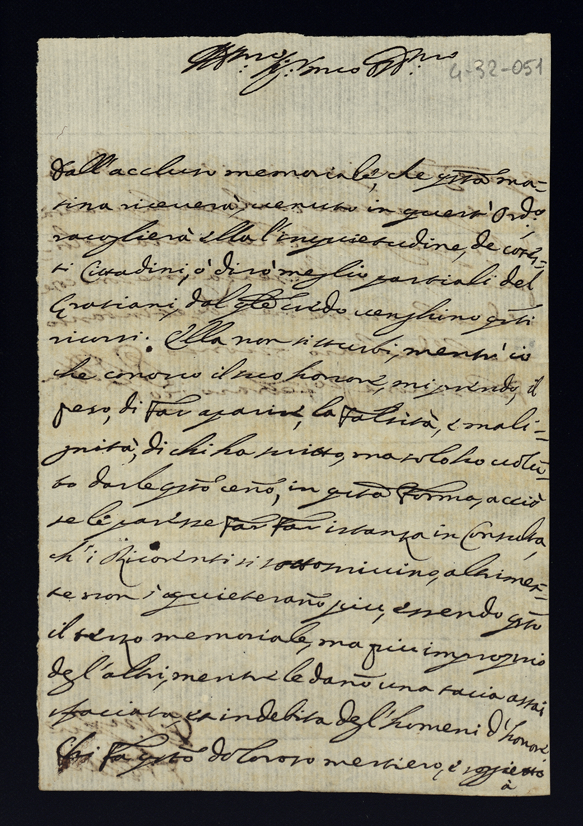 4-32-051
Dall'accluso memoriale, che q̃sta ma-
tina riceverà, venuto in quest'Ord.º
racoglierà ella l'inquietudine, de cotes-
ti Cittadini, ò dirò meglio partiali del
Gratiani, dal q̃le credo venghino q̃sti
ricorsi. Ella non si sturbi, mentr'io
che conosco il suo honore, mi prendo, il
peso, di far aparire, la falsità, e mali-
gnità, di chi ha scritto, ma solo ho volu-
to darle q̃sto ceño, in q̃sta forma, acciò
se le paresse far far istanza in Consulta,
ch'i Ricorenti si sottoscrivino, altrimen-
te non s'aquieteraño piu, essendo q̃sto
il terzo memoriale, ma piu improprio
degl'altri, mentre le daño una tacia assai
sfaciata, et indebita degl'homeni d'honore
Chi fa q̃sto doloroso mestiero, è soggietto
à